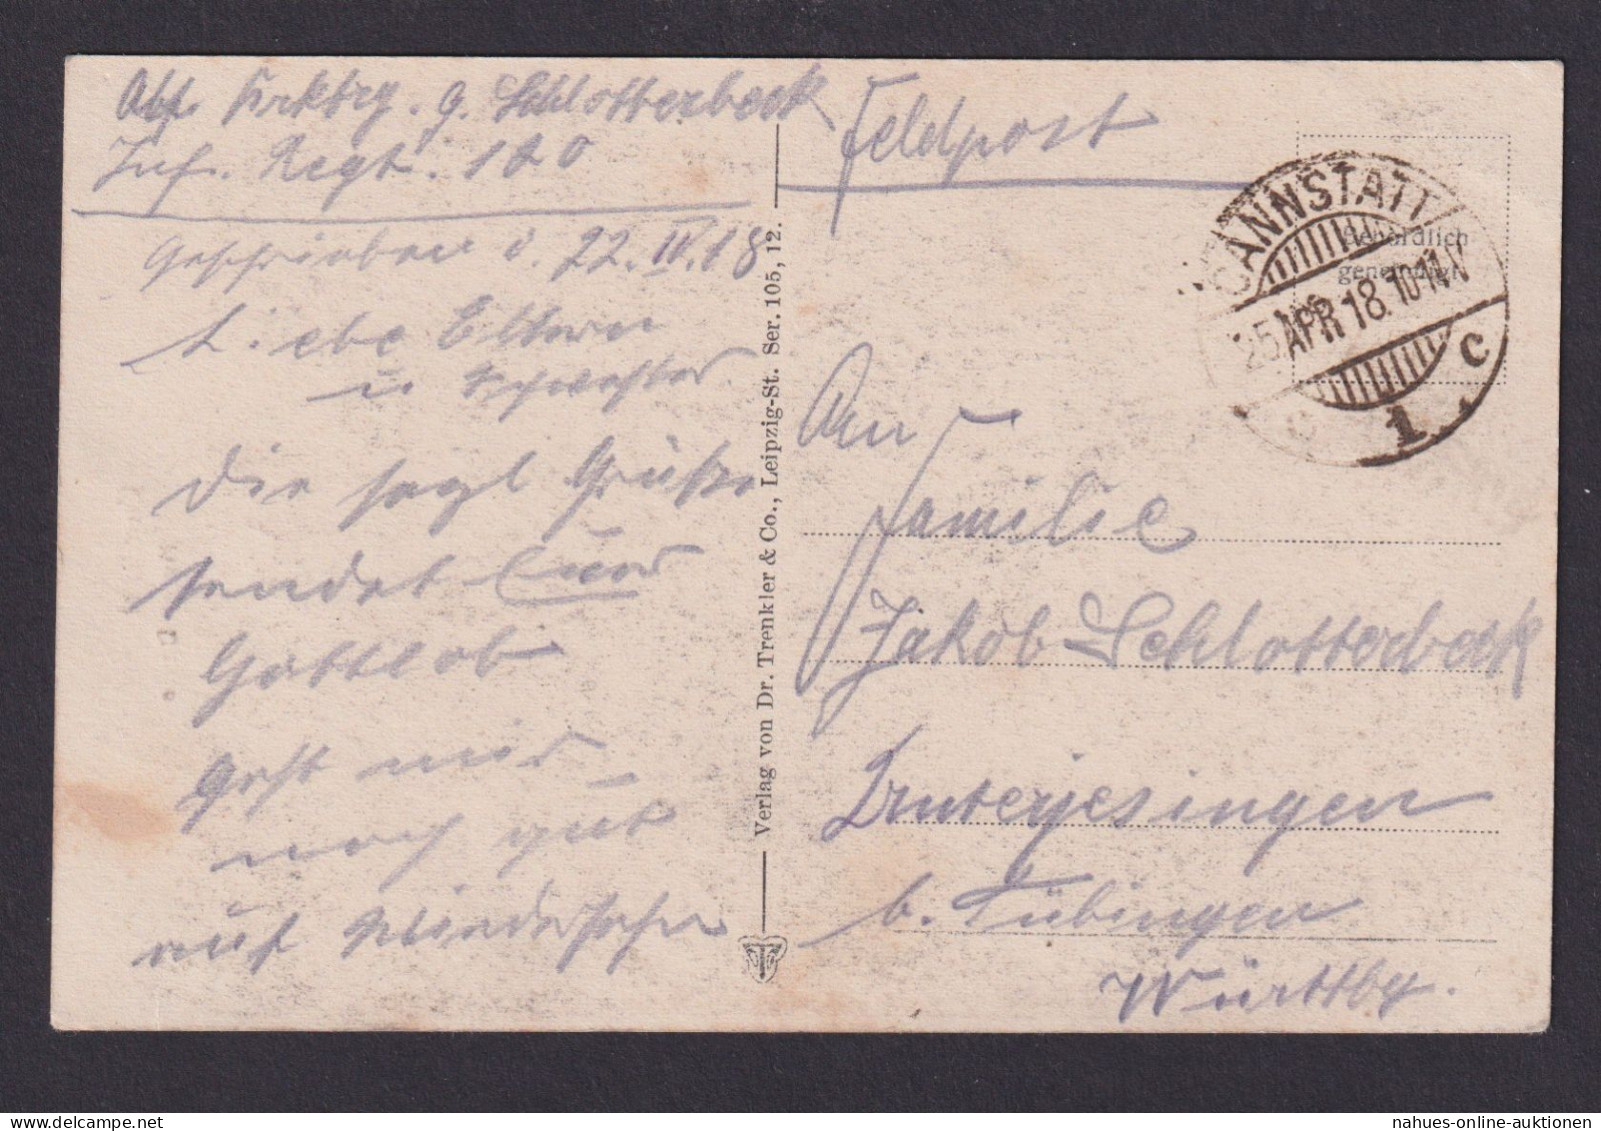 Abs. Krktrg. g. Schlotterbeck
Inf. Regt. 180
Geschrieben d. 22. IV. 18
Liebe Eltern
u. Schwester
Die herzl Grüße
sendet Euer
Gottlob
Geht mir
noch gut
auf Wiedersehn
Feldpost
CANNSTATT
25 APR 18. 10-11 V
1. c
Behördlich
genehmigt
An
Familie
Jakob Schlotterbeck
Unterjesingen
b. Tübingen
Württbg.
Verlag von Dr. Trenkler & Co., Leipzig-St. Ser. 105, 12.
nahues-online-auktionen